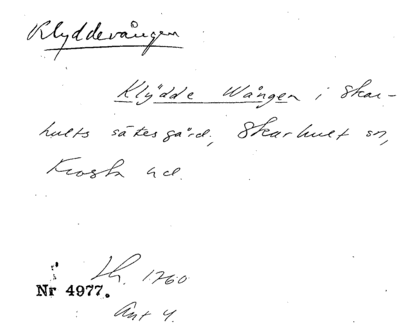 Klyddevången
Klÿdde Wången i Skar-
hults sätesgård, Skarhult sn,
Frosta hd.
Lh. 1760
Nr 4977.
Akt 4.